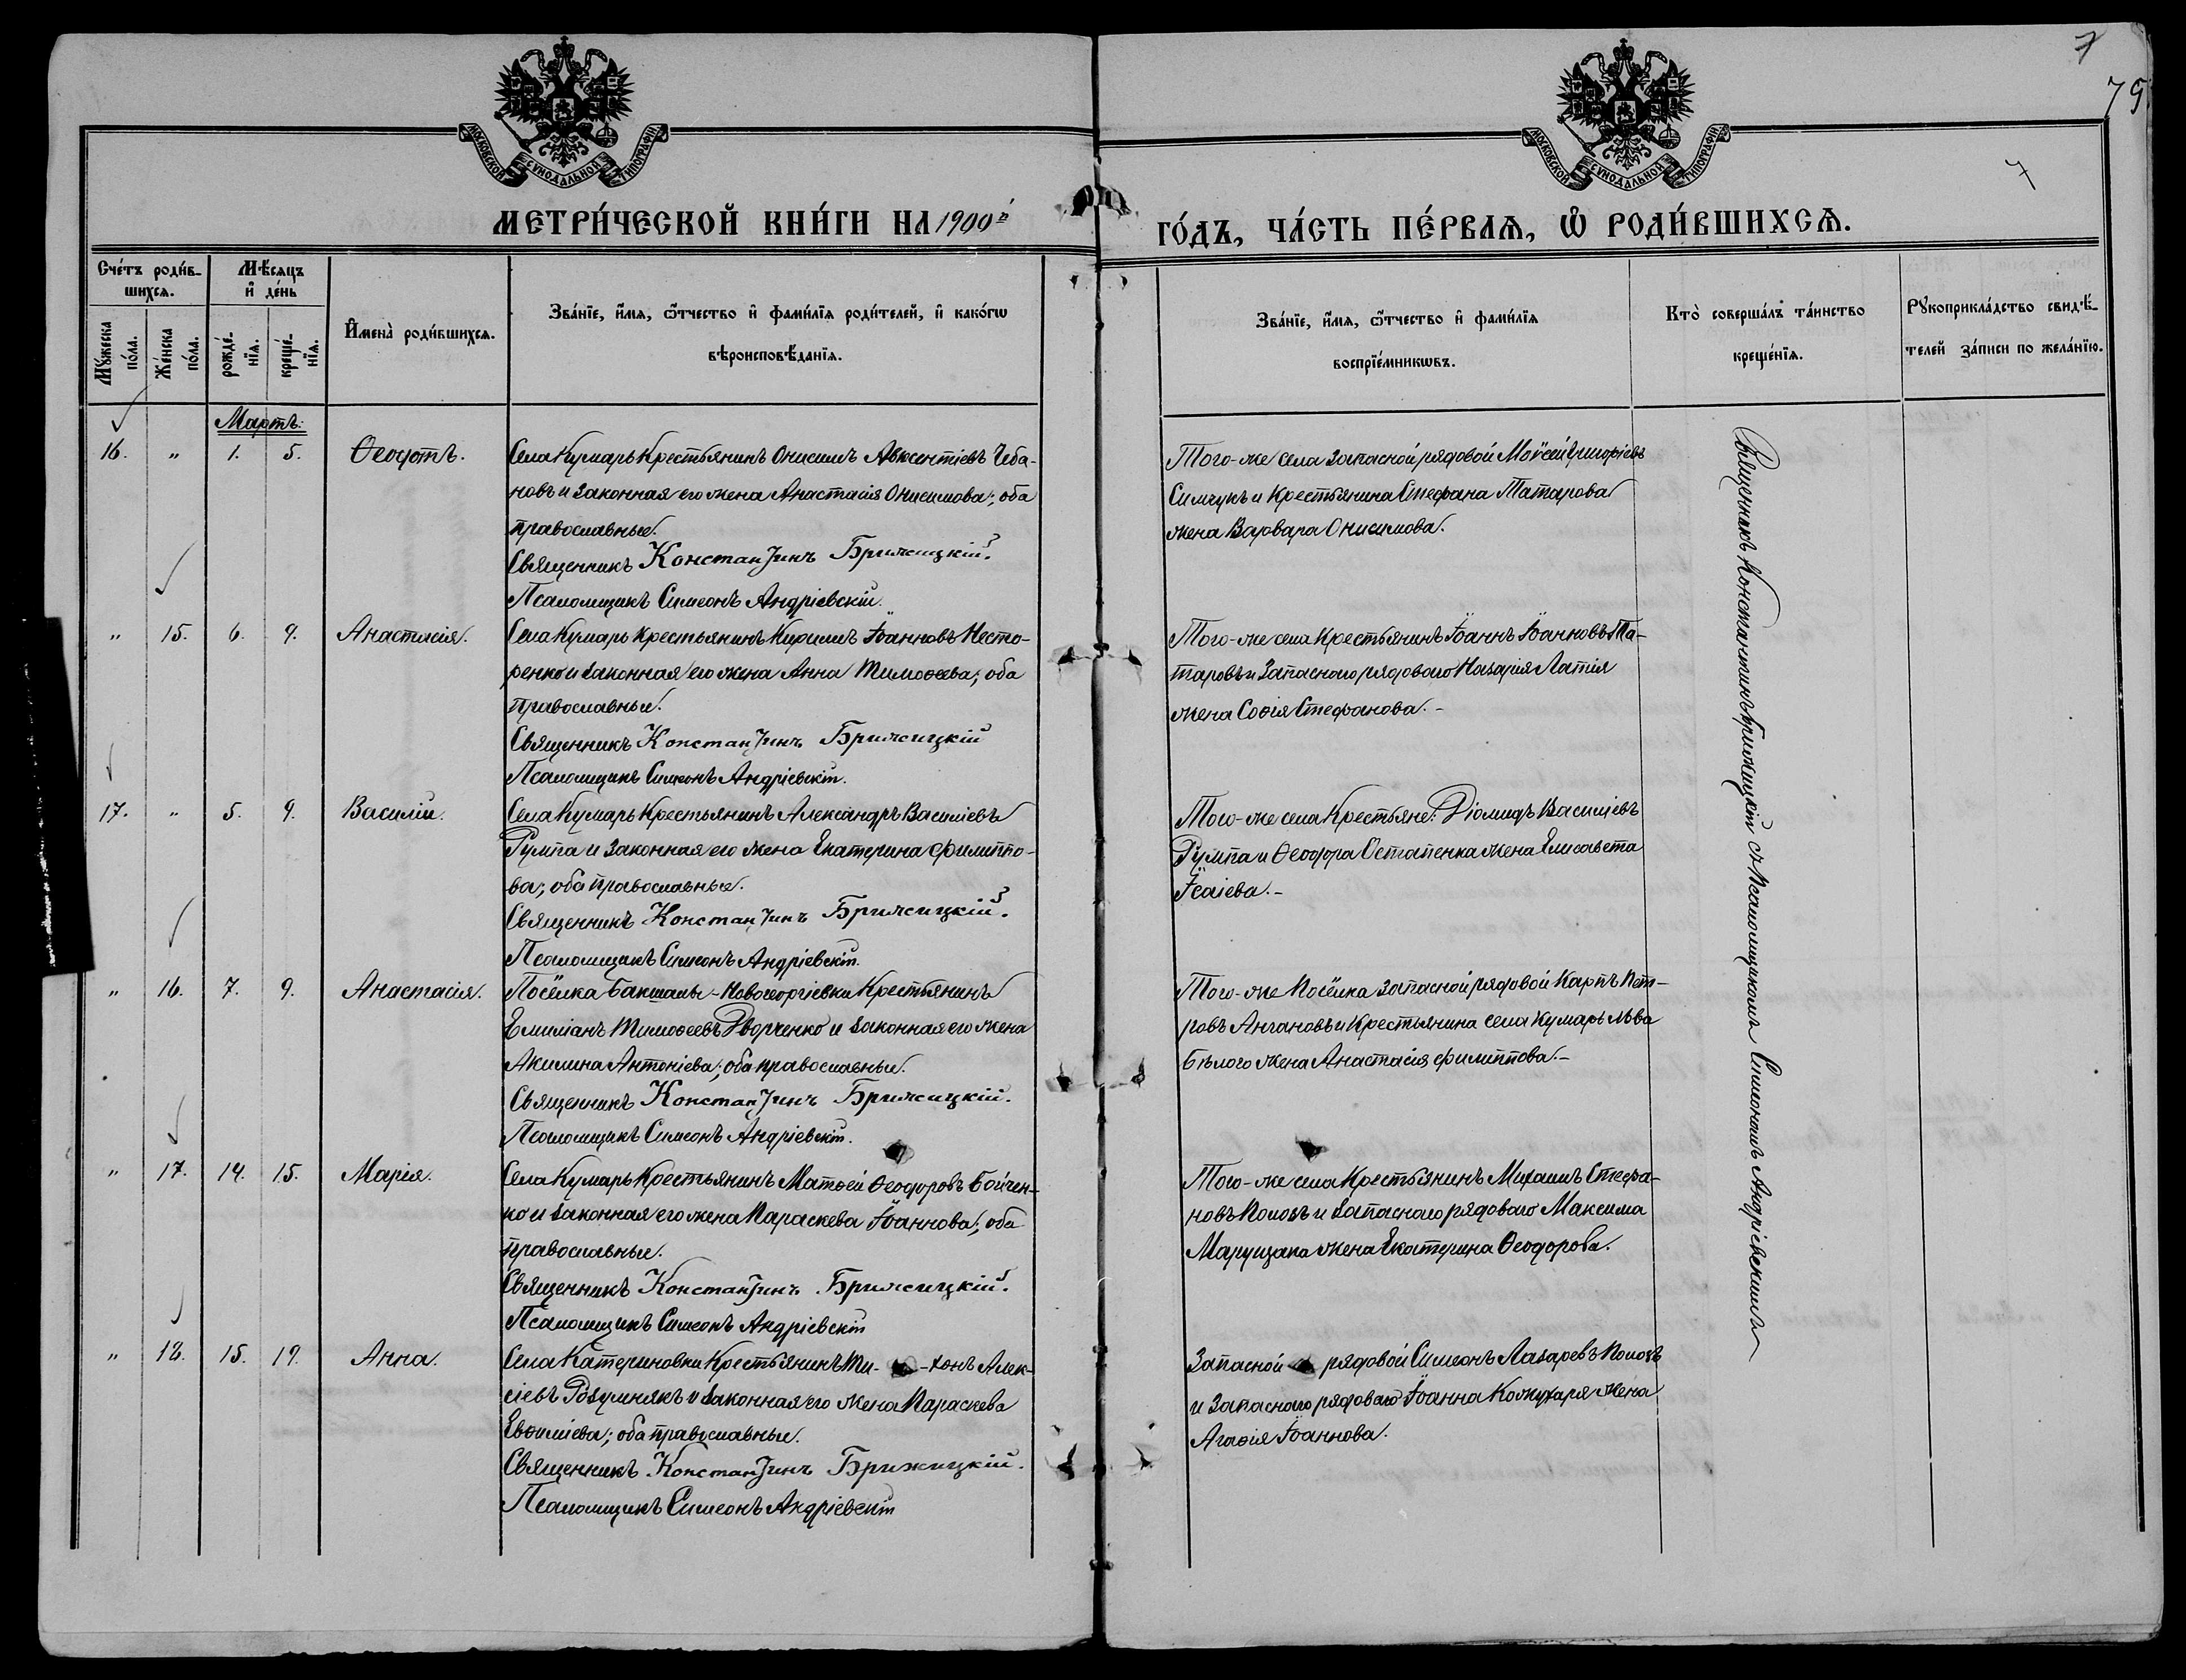 7
79
МОСКОВСКОЙ СѴНОДАЛЬНОЙ ТИПОГРАФІИ
МОСКОВСКОЙ СѴНОДАЛЬНОЙ ТИПОГРАФІИ
7
МЕТРИ́ЧЕСКОЙ КНИ́ГИ НА 1900й
ГО́ДЪ, ЧА́СТЬ ПЕ́РВАѦ, Ѡ҆ РОДИ́ВШИХСѦ.
Счéтъ роди́в-
шихсѧ.
Мѣ́сяцъ
и҆ де́нь
Мꙋ́жеска
по́ла.
Же́нска
по́ла.
рожде́-
нїѧ.
креще́-
нїѧ.
И҆мена̀ роди́вшихсѧ.
Зва́нїе, и҆́мѧ, ѻ҆́тчество и҆ фами́лїѧ роди́телей, и҆ како́гѡ
вѣроисповѣ́данїѧ.
Зва́нїе, и҆́мѧ, ѻ҆́тчество и҆ фами́лїѧ
воспрїе́мникѡвъ.
Кто̀ соверша́лъ та́инство
креще́нїѧ.
Рꙋкоприкла́дство свидѣ́-
телей за́писи по жела́нїю.
Мартъ:
16. " 1. 5. Ѳеодотъ.
Села Кумарь Крестьянинъ Онисимъ Авксентіевъ Чеба-
новъ и законная его жена Анастасія Онисимова; оба
православные.
Священникъ Константинъ Брижицкій.
Псаломщикъ Симеонъ Андріевскій.
Того-же села запасной рядовой Моѵсей Григоріевъ
Симчукъ и Крестьянина Стефана Татарова
жена Варвара Онисимова.
" 15. 6. 9. Анастасія.
Села Кумарь Крестьянинъ Кириллъ Іоанновъ Несто-
ренко и законная его жена Анна Тимоѳеева; оба
православные.
Священникъ Константинъ Брижицкій
Псаломщикъ Симеонъ Андріевскій.
Того-же села Крестьянинъ Іоаннъ Іоанновъ Та-
таровъ и Запасного рядового Назарія Латія
жена Софія Стефанова.-
17. " 5. 9. Василій.
Села Кумарь Крестьянинъ Александръ Василіевъ
Румпа и законная его жена Екатерина Филиппо-
ва; оба православные.
Священникъ Константинъ Брижицкій.
Псаломщикъ Симеонъ Андріевскій.
Того-же села Крестьяне: Діомидъ Василіевъ
Румпа и Ѳеодора Остапенка жена Елисавета
Ісаіева.-
" 16. 7. 9. Анастасія.
Посёлка Бакшалы-Новогеоргіевки Крестьянинъ
Емиліанъ Тимоѳеевъ Дворченко и законная его жена
Акилина Антоніева; оба православные.
Священникъ Константинъ Брижицкій.
Псаломщикъ Симеонъ Андріевскій.
Того-же Посёлка запасной рядовой Карпъ Пет-
ровъ Ангановъ и Крестьянина села Кумарь Льва
Бѣлого жена Анастасія Филиппова.-
" 17. 14. 15. Марія.
Села Кумарь Крестьянинъ Матѳей Ѳеодоровъ Бойчен-
ко и законная его жена Параскева Іоаннова; оба
православные.
Священникъ Константинъ Брижицкій.
Псаломщикъ Симеонъ Андріевскій
Того-же села Крестьянинъ Михаилъ Стефа-
новъ Поповъ и запасного рядового Максима
Марущака жена Екатерина Ѳеодорова.
" 18. 15. 19. Анна.
Села Катериновки Крестьянинъ Ти- -хонъ Алек-
сіевъ Розумнякъ и законная его жена Параскева
Евѳиміева; оба православные.
Священникъ Константинъ Брижицкій.
Псаломщикъ Симеонъ Андріевскій
Запасной рядовой Симеонъ Лазаревъ Поповъ
и Запасного рядового Іоанна Кожухаря жена
Агафія Іоаннова.
Священникъ Константинъ Брижицкій съ Псаломщикомъ Симеономъ Андріевскимъ